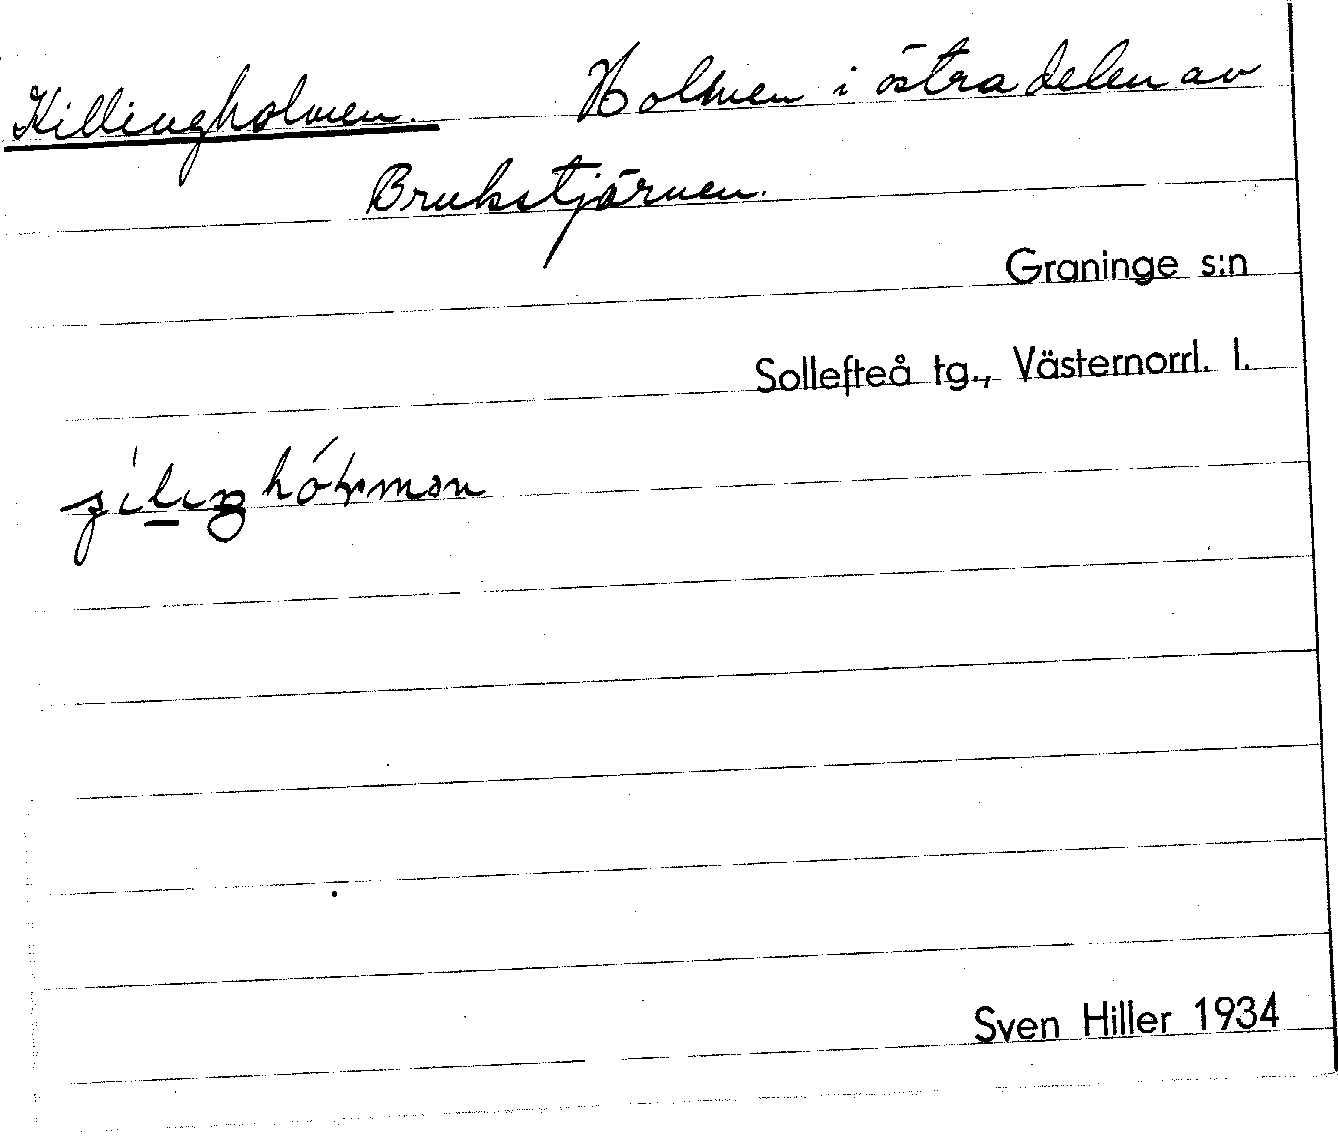 Killingholmen. Holmen i östra delen av
Brukstjärnen.
Graninge s:n
Sollefteå tg., Västernorrl. l.
Sven Hiller 1934